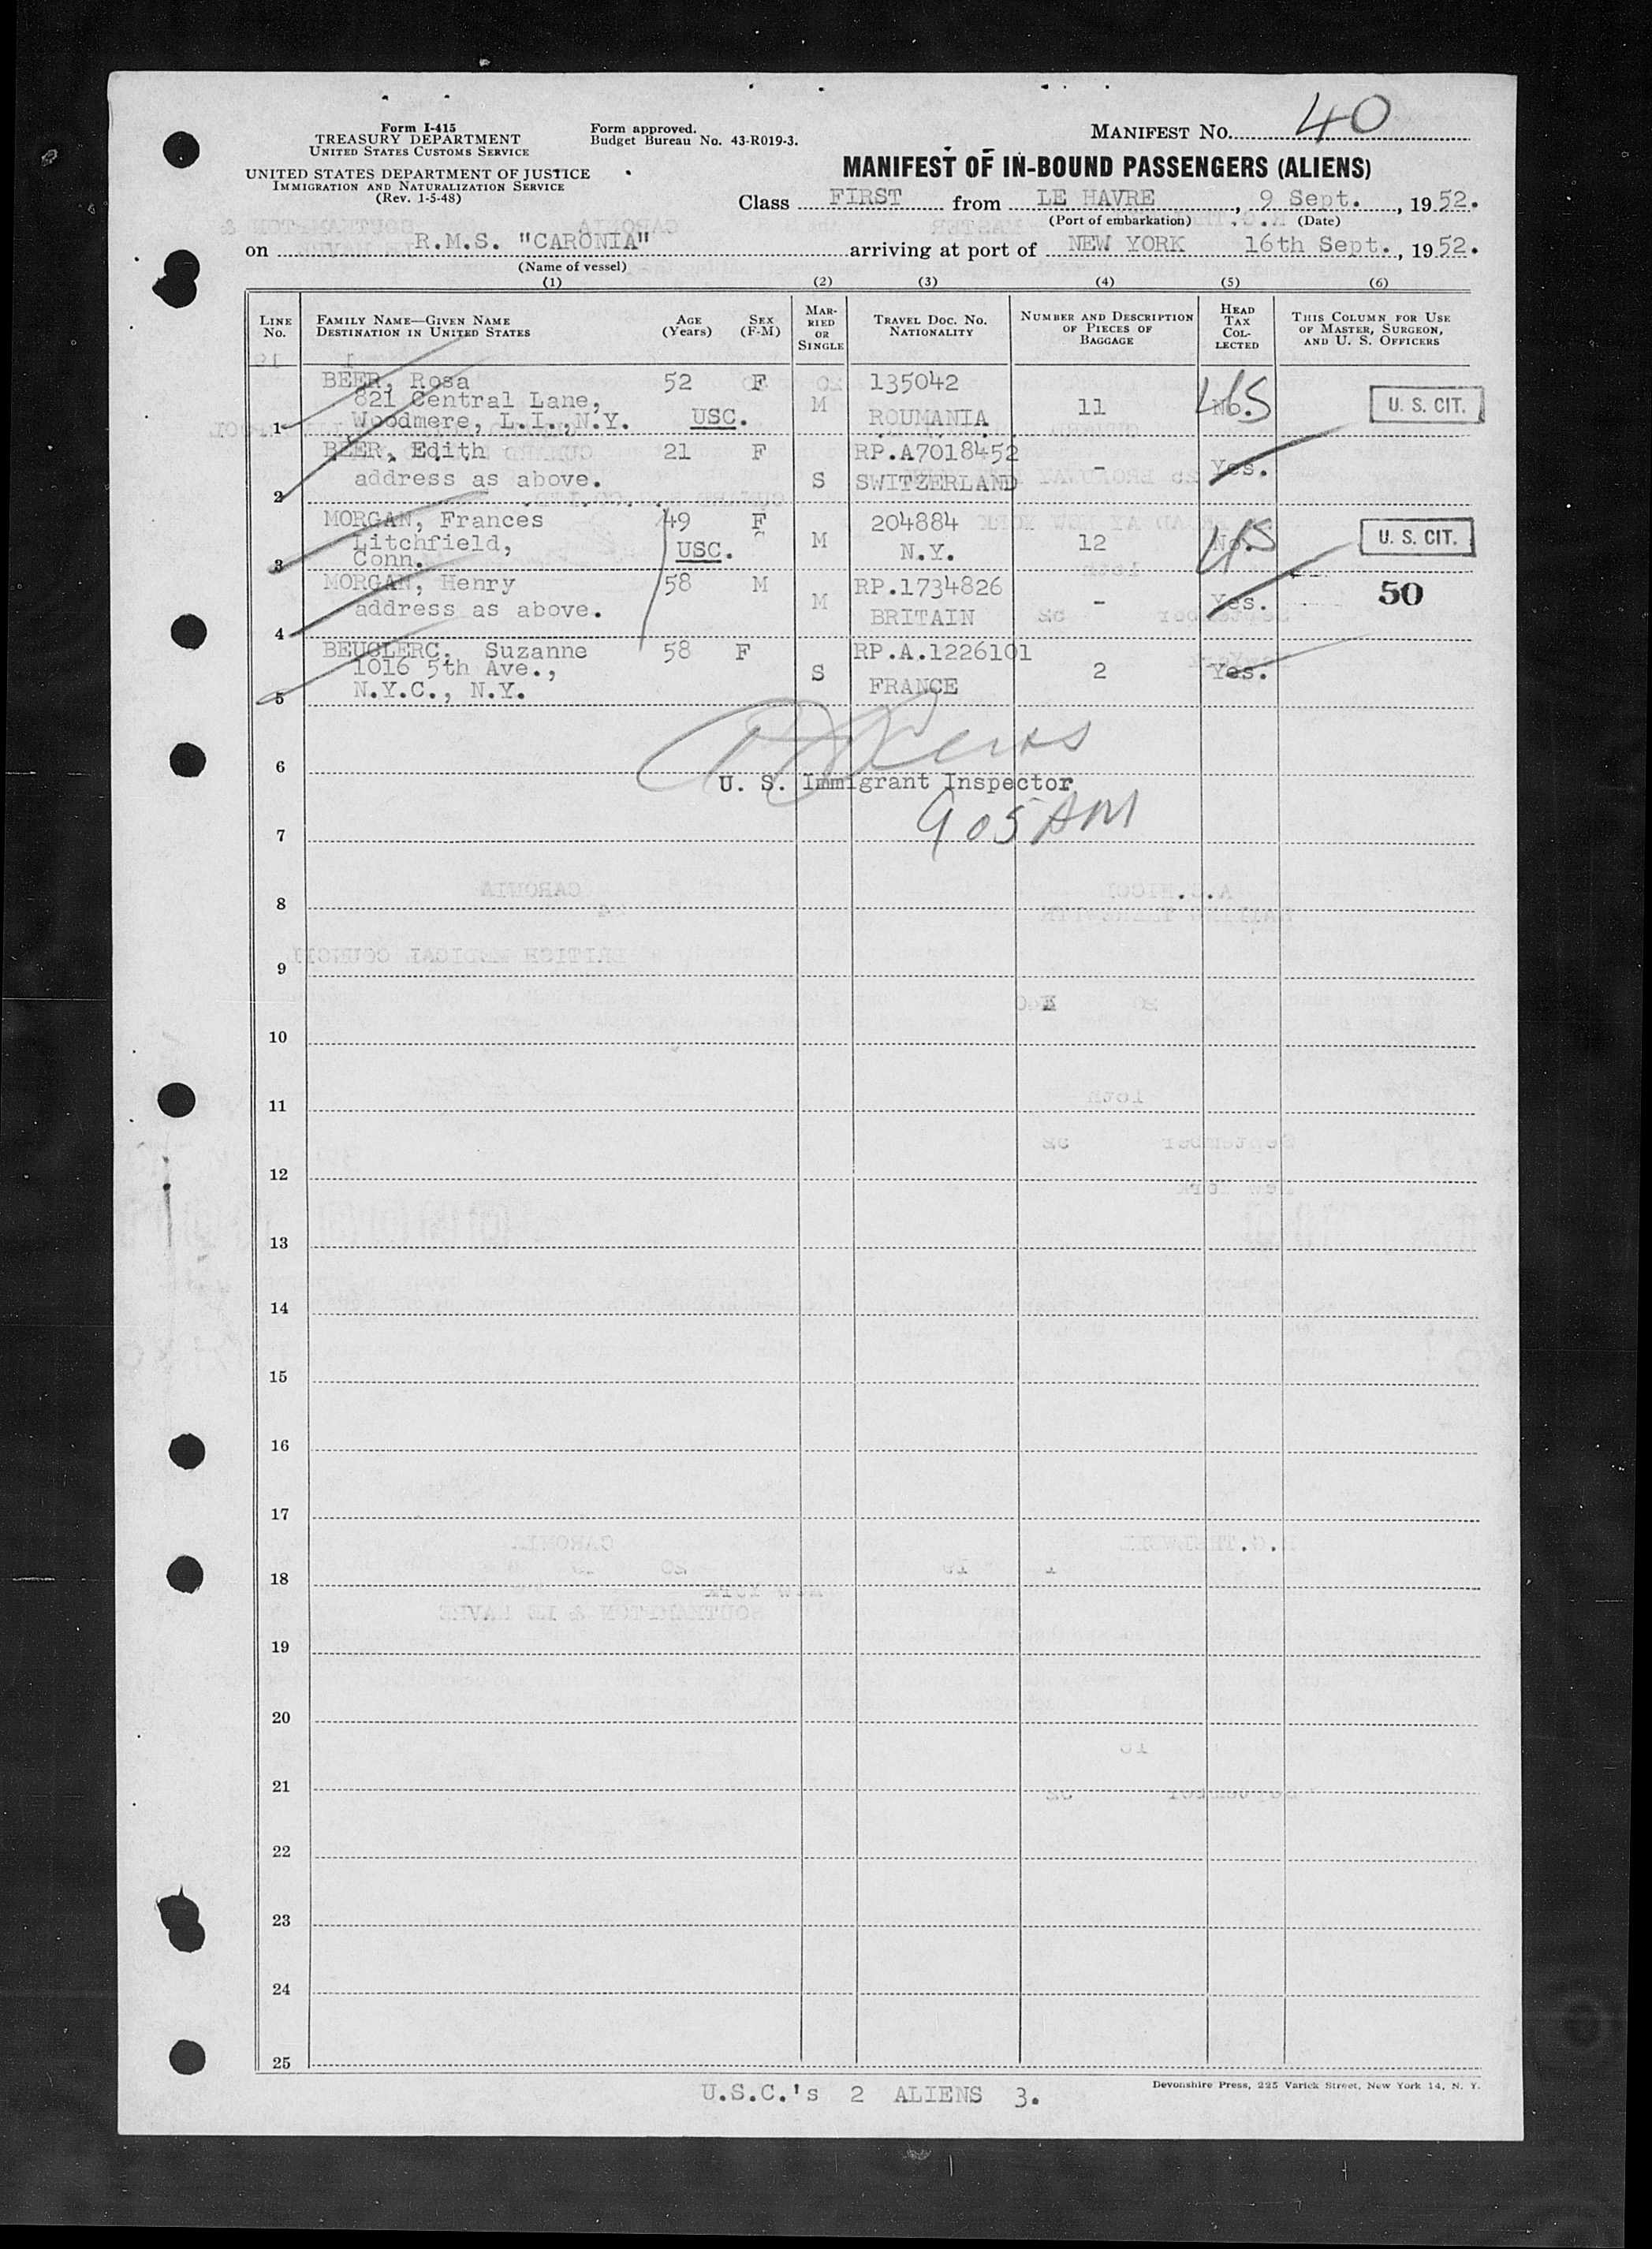 Form I-415
TREASURY DEPARTMENT
UNITED STATES CUSTOMS SERVICE
UNITED STATES DEPARTMENT OF JUSTICE
IMMIGRATION AND NATURALIZATION SERVICE
(Rev. 1-5-48)
Form approved.
Budget Bureau No. 43-R019-3.
MANIFEST NO. 40
MANIFEST OF IN-BOUND PASSENGERS (ALIENS)
Class FIRST from LE HAVRE, 9 Sept., 1952.
(Port of embarkation) (Date)
on R.M.S. "CARONIA" arriving at port of NEW YORK 16th Sept., 1952.
(Name of vessel)
(1) (2) (3) (4) (5) (6)
LINE NO. FAMILY NAME—GIVEN NAME DESTINATION IN UNITED STATES AGE (Years) SEX (F-M) MARRIED OR SINGLE TRAVEL DOC. NO. NATIONALITY NUMBER AND DESCRIPTION OF PIECES OF BAGGAGE HEAD TAX COLLECTED THIS COLUMN FOR USE OF MASTER, SURGEON, AND U. S. OFFICERS
BEER, Rosa 52 F 135042
821 Central Lane, M 11 No. U. S. CIT.
1 Woodmere, L.I.,N.Y. USC. ROUMANIA
BEER, Edith 21 F RP.A7018452
2 address as above. S SWITZERLAND - Yes.
MORGAN, Frances 49 F 204884
Litchfield, USC. M N.Y. 12 No. U. S. CIT.
3 Conn.
MORGAN, Henry 58 M RP.1734826 50
4 address as above. M BRITAIN - Yes.
BEUGLERC, Suzanne 58 F RP.A.1226101
1016 5th Ave., S 2 Yes.
5 N.Y.C., N.Y. FRANCE
6
U. S. Immigrant Inspector
905 AM
7
8
9
10
11
12
13
14
15
16
17
18
19
20
21
22
23
24
25
Devonshire Press, 225 Varick Street, New York 14, N. Y.
U.S.C.'s 2 ALIENS 3.